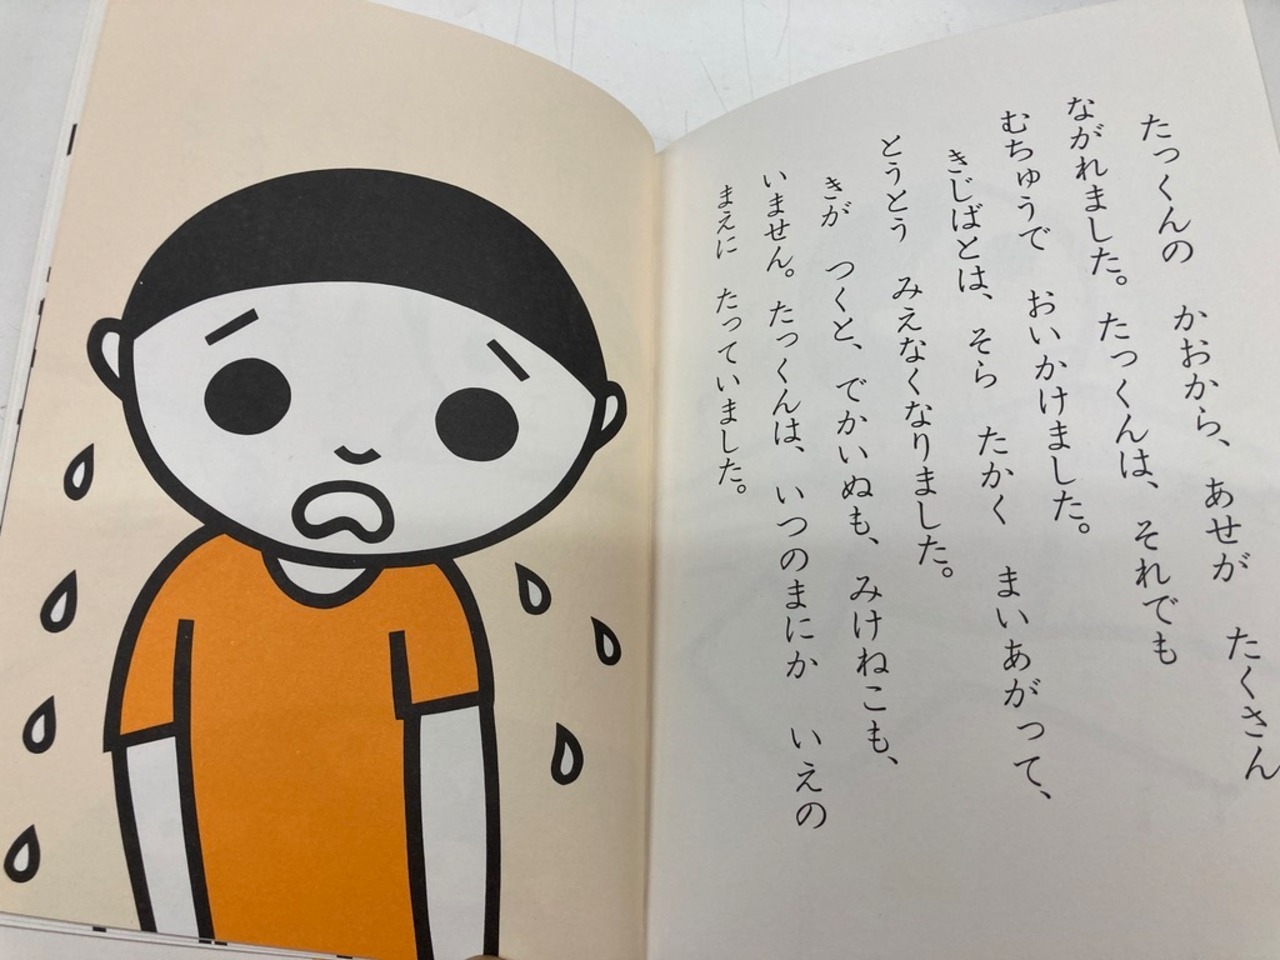 たっくんの　かおから、あせが　たくさん
ながれました。たっくんは、それでも
むちゅうで　おいかけました。
きじばとは、そら　たかく　まいあがって、
とうとう　みえなくなりました。
きが　つくと、でかいぬも、みけねこも、
いません。たっくんは、いつのまにか　いえの
まえに　たっていました。